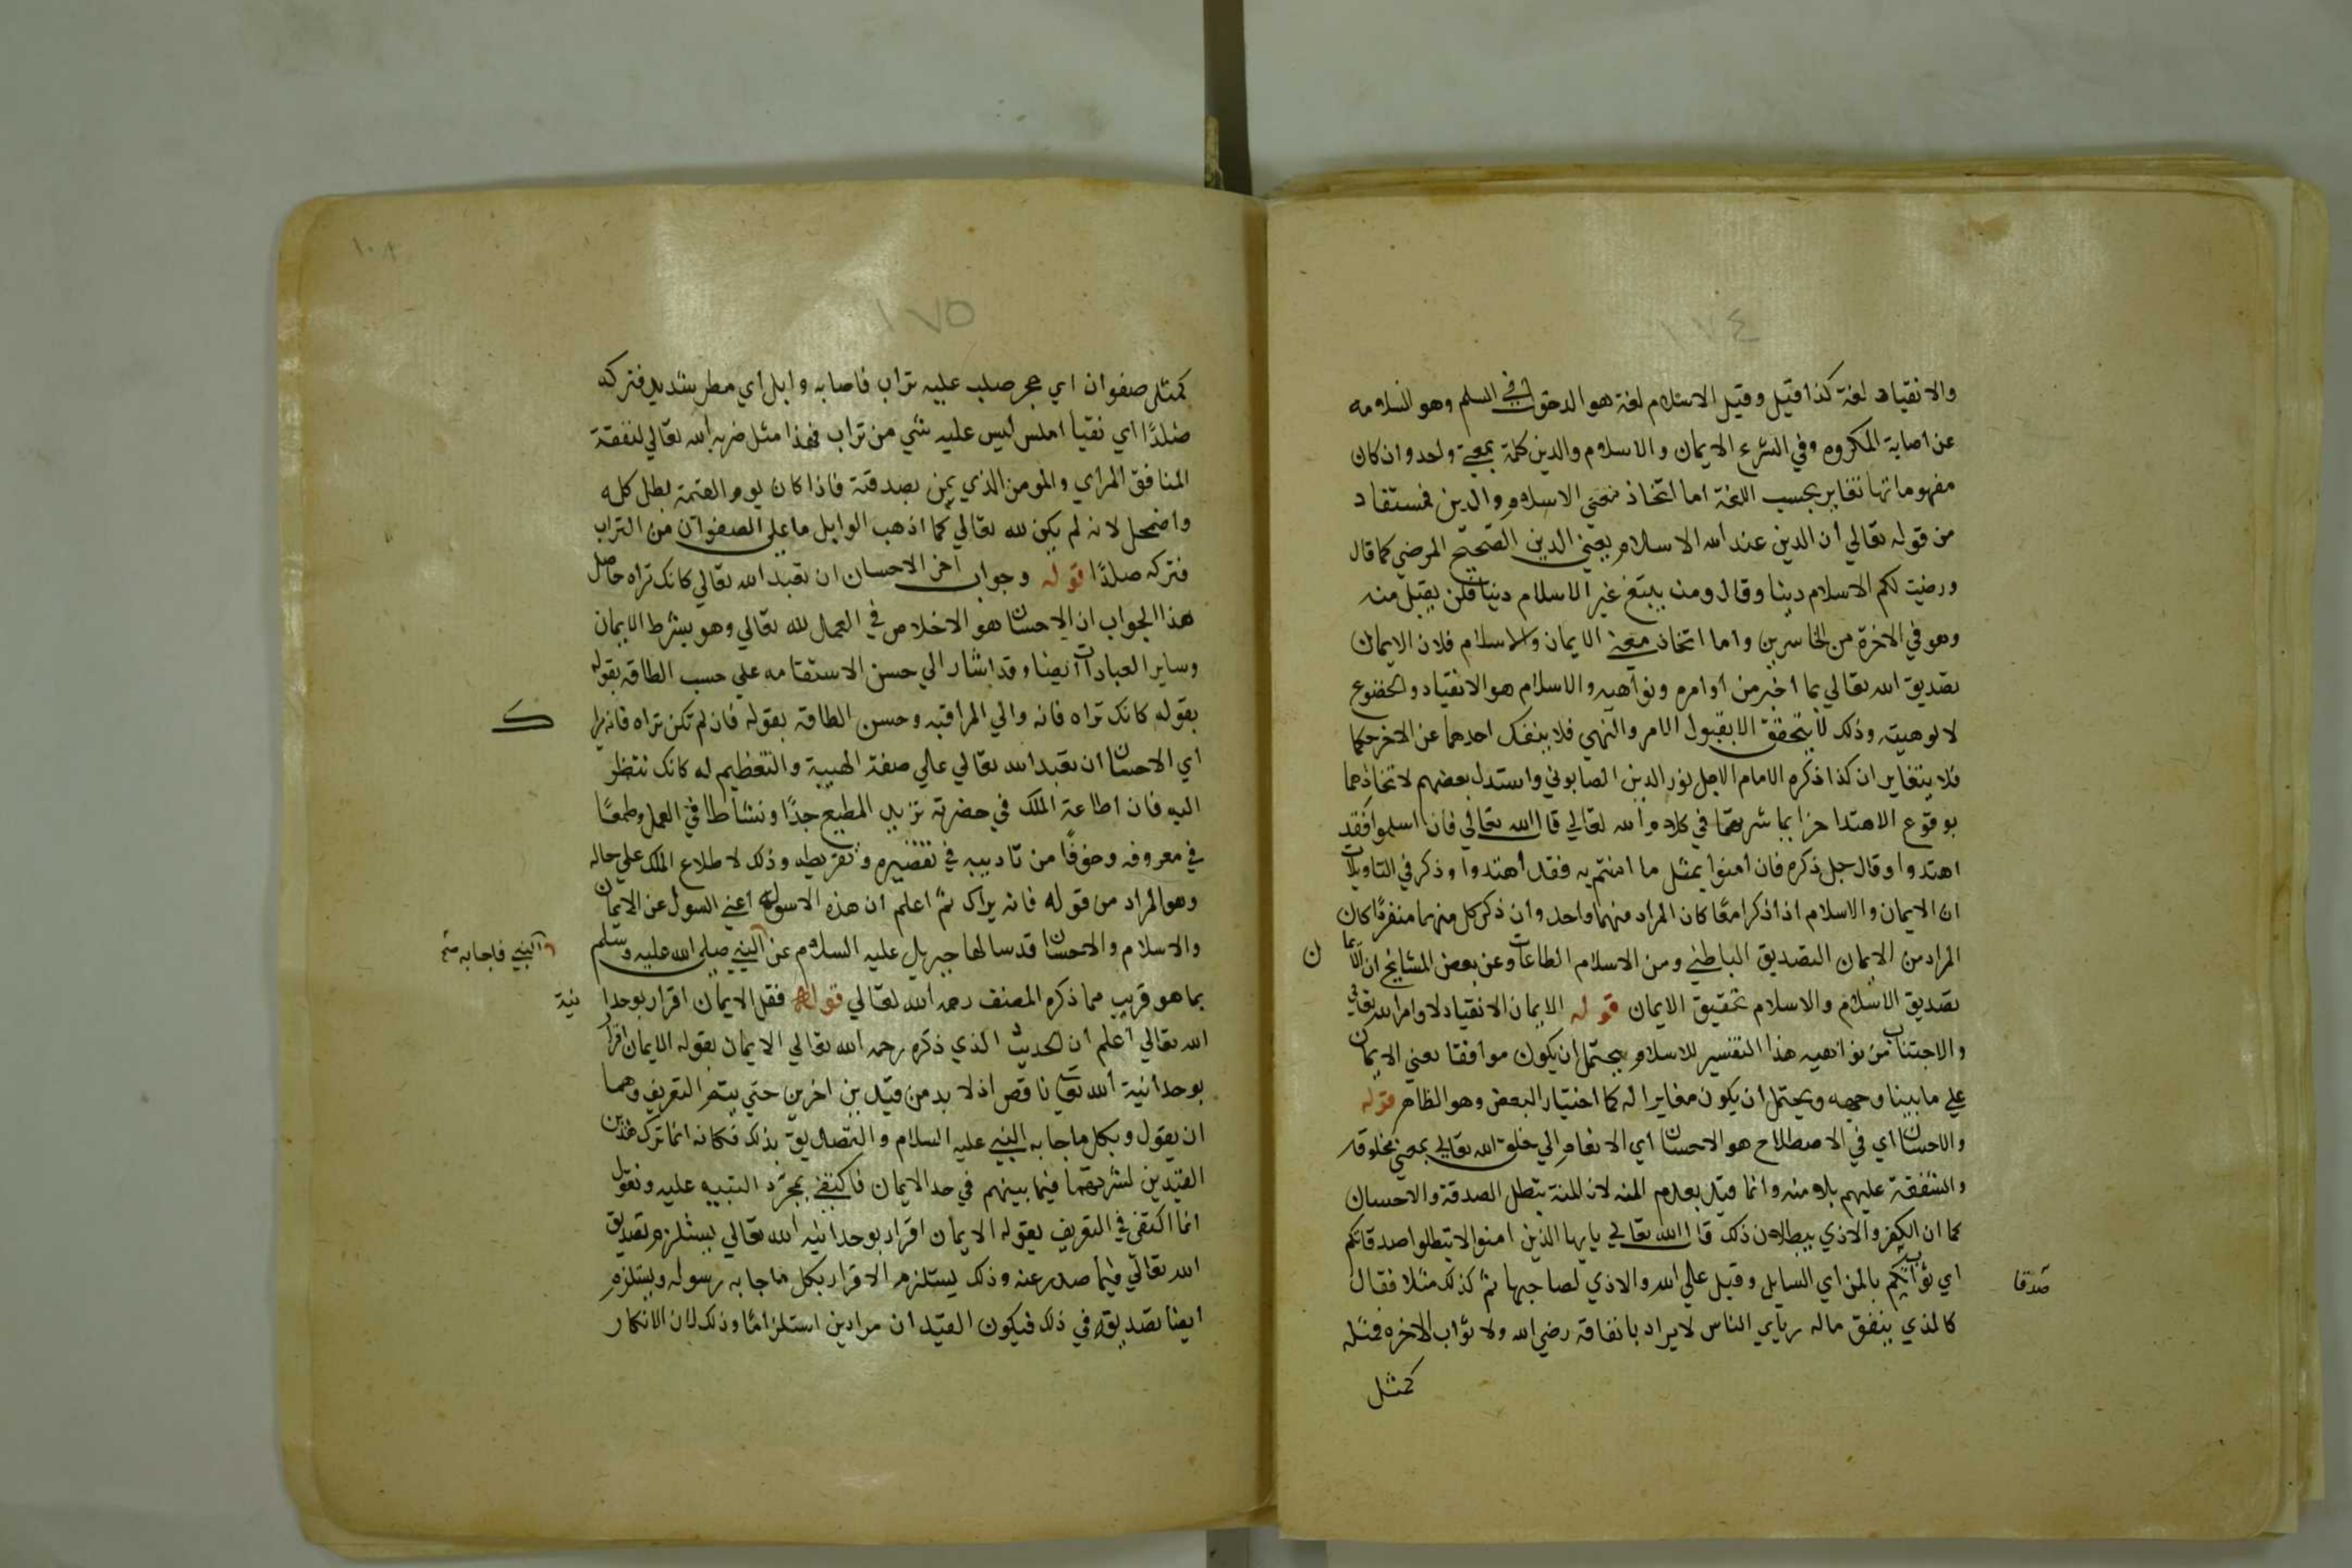 ١٧٤
والانقياد لغة كذا قيل وقيل الاسلام لغة هو الدخول في السلم وهو السلامه
عن اصابة المكروه وفي الشرع الايمان والاسلام والدين كلمة بمعني واحد وان كان
مفهوماتها تغاير بحسب اللغة اما اتحاد معني الاسلام والدين فمستفاد
من قوله تعالي ان الدين عند الله الاسلام يعني الدين الصحيح المرضي كما قال
ورضيت لكم الاسلام دينا وقال ومن يبتغ غير الاسلام دينا فلن يقبل منه
وهو في الاخرة من الخاسرين واما اتحاد معني الايمان والاسلام فلان الايمان
تصديق الله تعالي بما اخبر من اوامره ونواهيه والاسلام هو الانقياد والخضوع
لالوهيته وذلك لا يتحقق الا بقبول الامر والنهي فلا ينفك احدهما عن الاخر حكما
فلا يتغايران كذا ذكره الامام الاجل نور الدين الصابوني واستدل بعضهم لاتحادهما
بوقوع الاهتدا جزا بما شرعتما في كلام الله تعالي قال الله تعالي فان اسلموا فقد
اهتدوا وقال جل ذكره فان امنوا بمثل ما امنتم به فقد اهتدوا وذكر في التاويلات
ان الايمان والاسلام اذا ذكرا معًا كان المراد منهما واحد وان ذكر كل منهما منفردًا كان
المراد من الايمان التصديق الباطني ومن الاسلام الطاعات وعن بعض المشايخ ان الايمان
تصديق الاسلام والاسلام تحقيق الايمان قوله الايمان الانقياد لاوامر الله تعالي
والاجتناب من نواهيه هذا التفسير للاسلام يحتمل ان يكون موافقا لمعني الايمان
علي ما بينا وجهه ويحتمل ان يكون مغايرا له كما اختيار البعض وهو الظاهر قوله
والاحسان اي في الاصطلاح هو الاحسان اي الانعام الي خلق الله تعالي بمعني مخلوقه
والشفقة عليهم بلا منه وانما قيل بعدم المنه لان المنة يبطل الصدقة والاحسان
كما ان الكفر والاذي يبطلان ذلك قال الله تعالي يايها الذين امنوا لا تبطلوا صدقاتكم
اي ثوابكم بالمن اي السايل وقيل علي الله والاذي لصاحبها ثم كذلك مثلا فقال
صدقا
كالذي ينفق ماله رياي الناس لا يراد بانفاقه رضي الله ولا ثواب الاخره فمثله
كمثل
١٧٥
كمثل صفوان اي حجر صلب عليه تراب فاصابه وابل اي مطر شديد فتركه
صلدًا اي نقيا املس ليس عليه شي من تراب فهذا مثل ضربه الله تعالي لنفقة
المنافق المراي والمومن الذي يمن بصدقة فاذا كان يوم القيمة بطل كله
واضمحل لانه لم يكن لله تعالي كما اذهب الوابل ما علي الصفوان من التراب
فتركه صلدًا قوله وجواب اخر الاحسان ان تعبد الله تعالي كانك تراه حاصل
هذا الجواب ان الاحسان هو الاخلاص في العمال لله تعالي وهو بشرط الايمان
وساير العبادات ايضا وقد اشار الي حسن الاستقامه علي حسب الطاقه بقوله
بقوله كانك تراه فانه والي المراقبه وحسن الطاقة بقوله فان لم تكن تراه فانه يراك
اي الاحسان ان تعبد الله تعالي علي صفة الهيبة والتعظيم له كانك تنظر
اليه فان اطاعة الملك في حضرته تزيد المطيع جدًا ونشاطا في العمل وطمعًا
في معروفه وخوفًا من تاديبه في تقصيره وتفريطه وذلك لاطلاع الملك علي حاله
وهو المراد من قوله فانه يراك ثم اعلم ان هذه الاسوله اعني السول عن الايمان
والاسلام والاحسان قد سالها جبريل عليه السلام عن النبي صلي الله عليه وسلم
النبي فاجابه
بما هو قريب مما ذكره المصنف رحمه الله تعالي قوله فقل الايمان اقرار بوحدا نية
الله تعالي اعلم ان الحديث الذي ذكره رحمه الله تعالي الايمان بقوله الايمان اقرار
بوحدانية الله تعالي ناقص اذ لا بد من قيدين اخرين حتي يتم التعريف وهما
ان يقول وبكل ما جا به النبي عليه السلام والتصديق بذلك فكانه انما ترك هذين
القيدين لشرتهما فيما بينهم في حد الايمان فاكتفي بمجرد التنبيه عليه ونقول
انما اكتفي في التعريف بقوله الايمان اقرار بوحدانيه الله تعالي يستلزم تصديق
الله تعالي فيما صدر عنه وذلك يستلزم الاقرار بكل ما جا به رسوله ويستلزم
ايضا تصديقه في ذلك فيكون القيدان مرادين استلزامًا وذلك لان الانكار